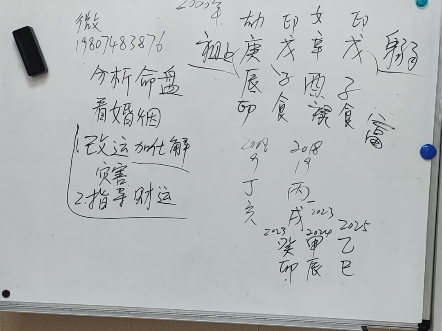 2000年
微
19807483876
分析命盘
看婚姻
1.改运加仕解
灾害
2.指导财运
劫 印 文 印
庚 戊 辛 戊
辰 子 酉 子
印 食 食
富
2008 2018
9 19
丁 丙
亥 戌
2023 2023 2024 2025
癸 甲 乙
卯 辰 巳